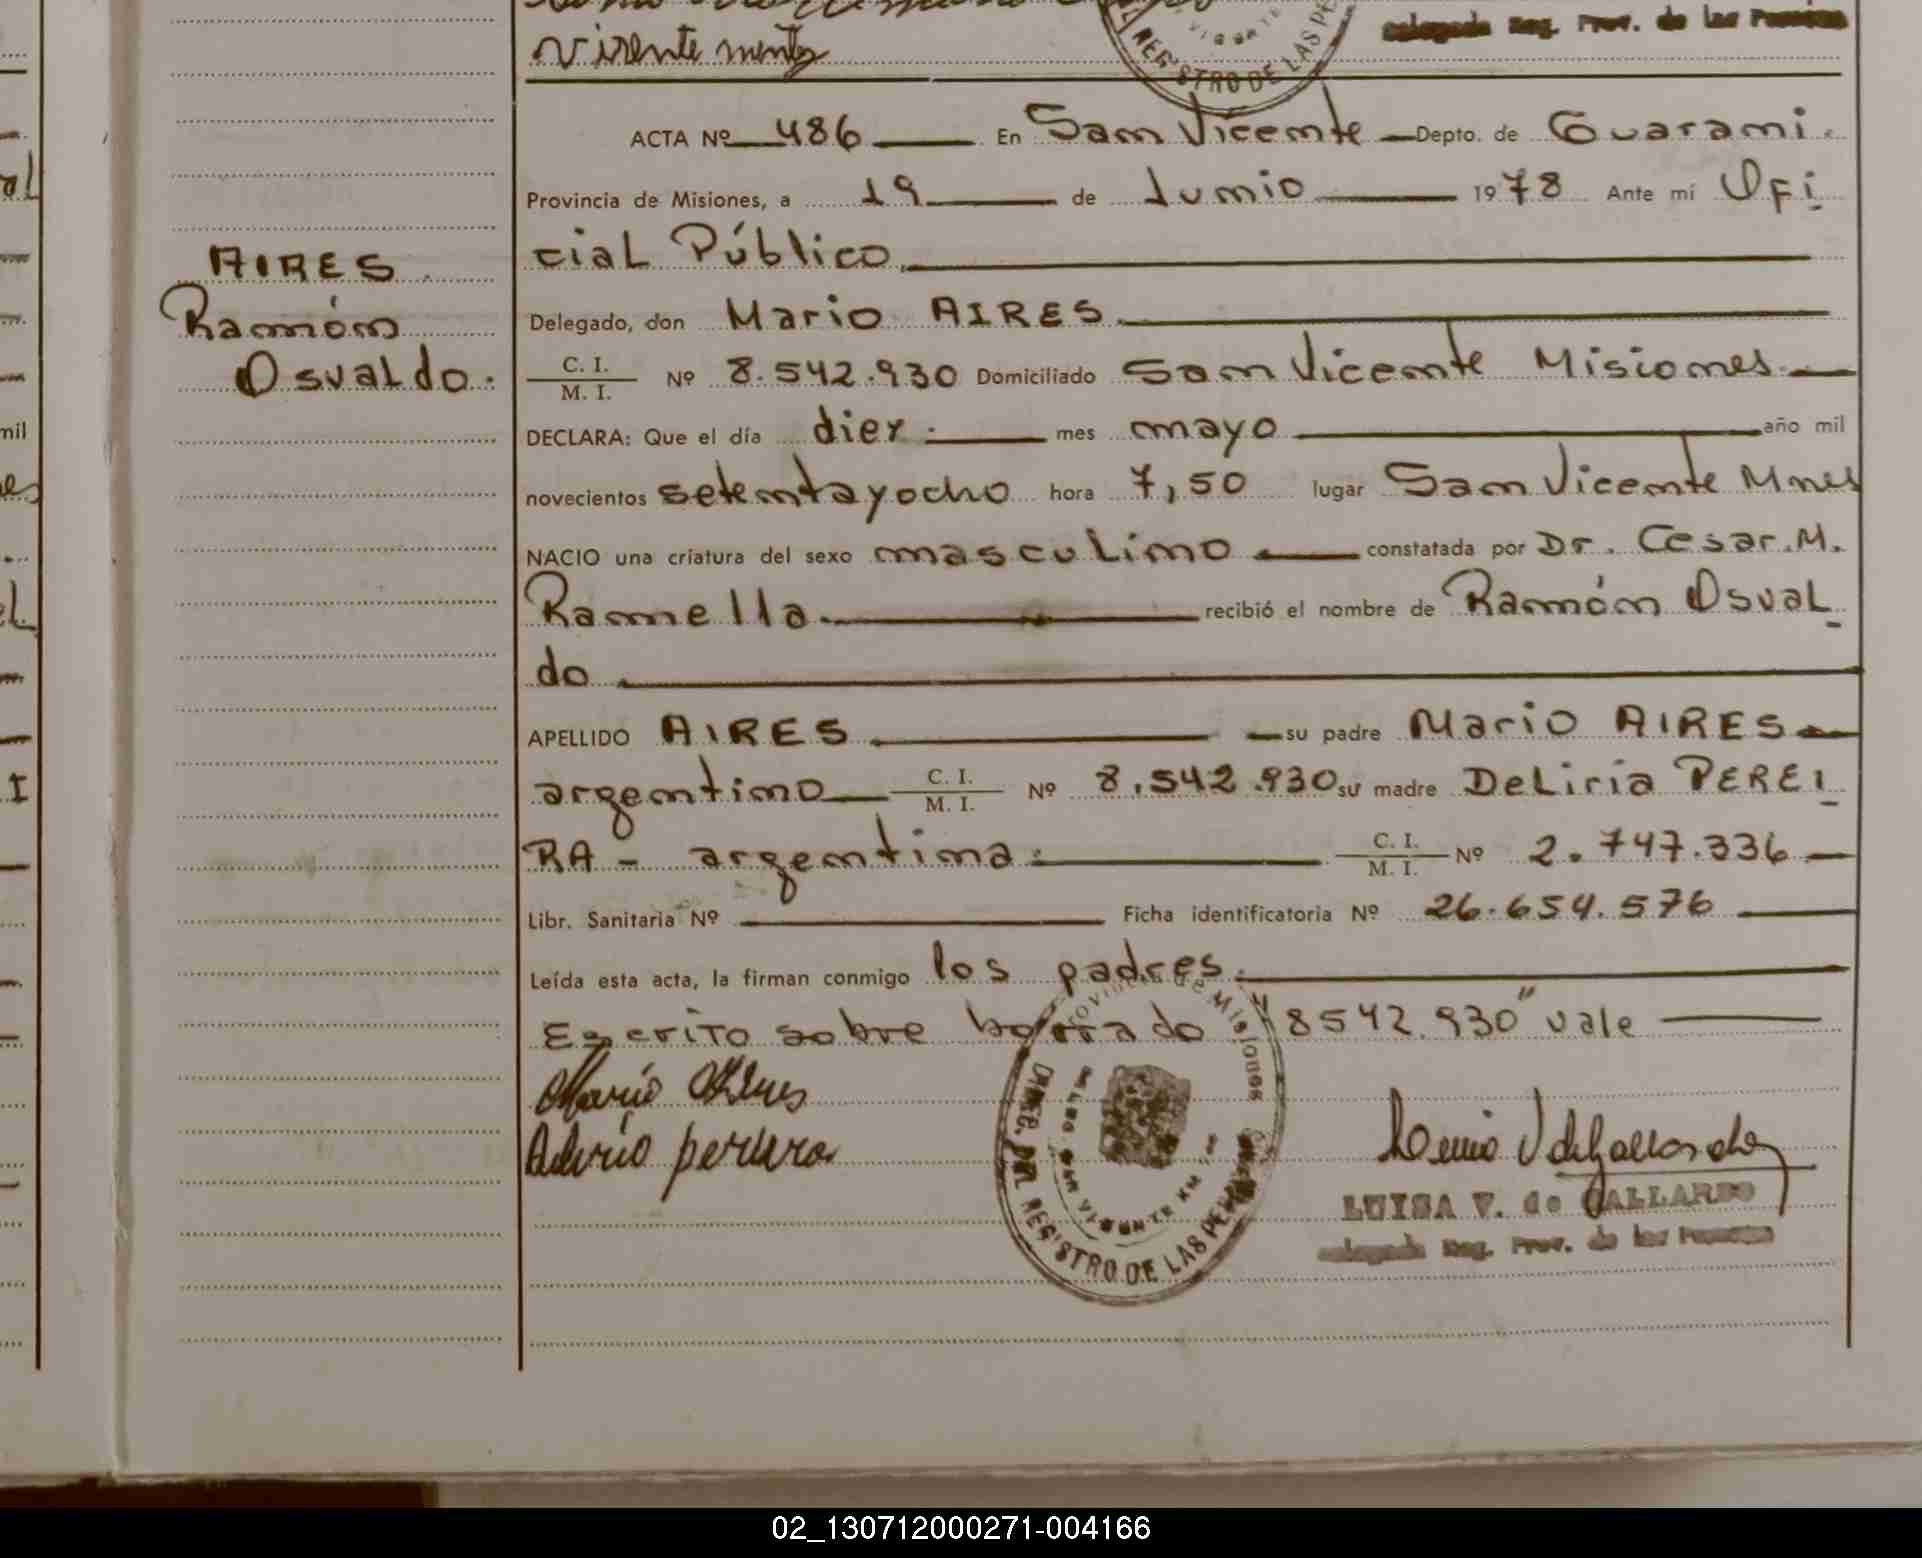 Vicente mentz
REGISTRO DE LAS PE
Delegada Reg. Prov. de las Personas
ACTA Nº 486 En San Vicente Depto. de Guarani.
Provincia de Misiones, a 19 de Junio 1978 Ante mí Ofi
cial Público
AIRES
Ramón
Osvaldo.
Delegado, don Mario AIRES
C. I.
M. I. Nº 8.542.930 Domiciliado San Vicente Misiones
DECLARA: Que el día diez mes mayo año mil
novecientos setentayocho hora 7,50 lugar San Vicente Mnes
NACIO una criatura del sexo masculino constatada por Dr. Cesar.M.
Ramella recibió el nombre de Ramón Osval
do
APELLIDO AIRES su padre Mario AIRES
argentino C. I.
M. I. Nº 8.542.930 su madre Deliria PEREI
RA - argentina: C. I.
M. I. Nº 2.747.336
Libr. Sanitaria Nº Ficha identificatoria Nº 26.654.576
Leída esta acta, la firman conmigo los padres.
Escrito sobre borrado "8542.930" vale
Mario Aires
pereira
Provincia de Misiones
DIREC. PROV. REGISTRO DE LAS PERSONAS
SAN VICENTE
LUISA V. de GALLARDO
Delegada Reg. Prov. de las Personas
mil
02_130712000271-004166